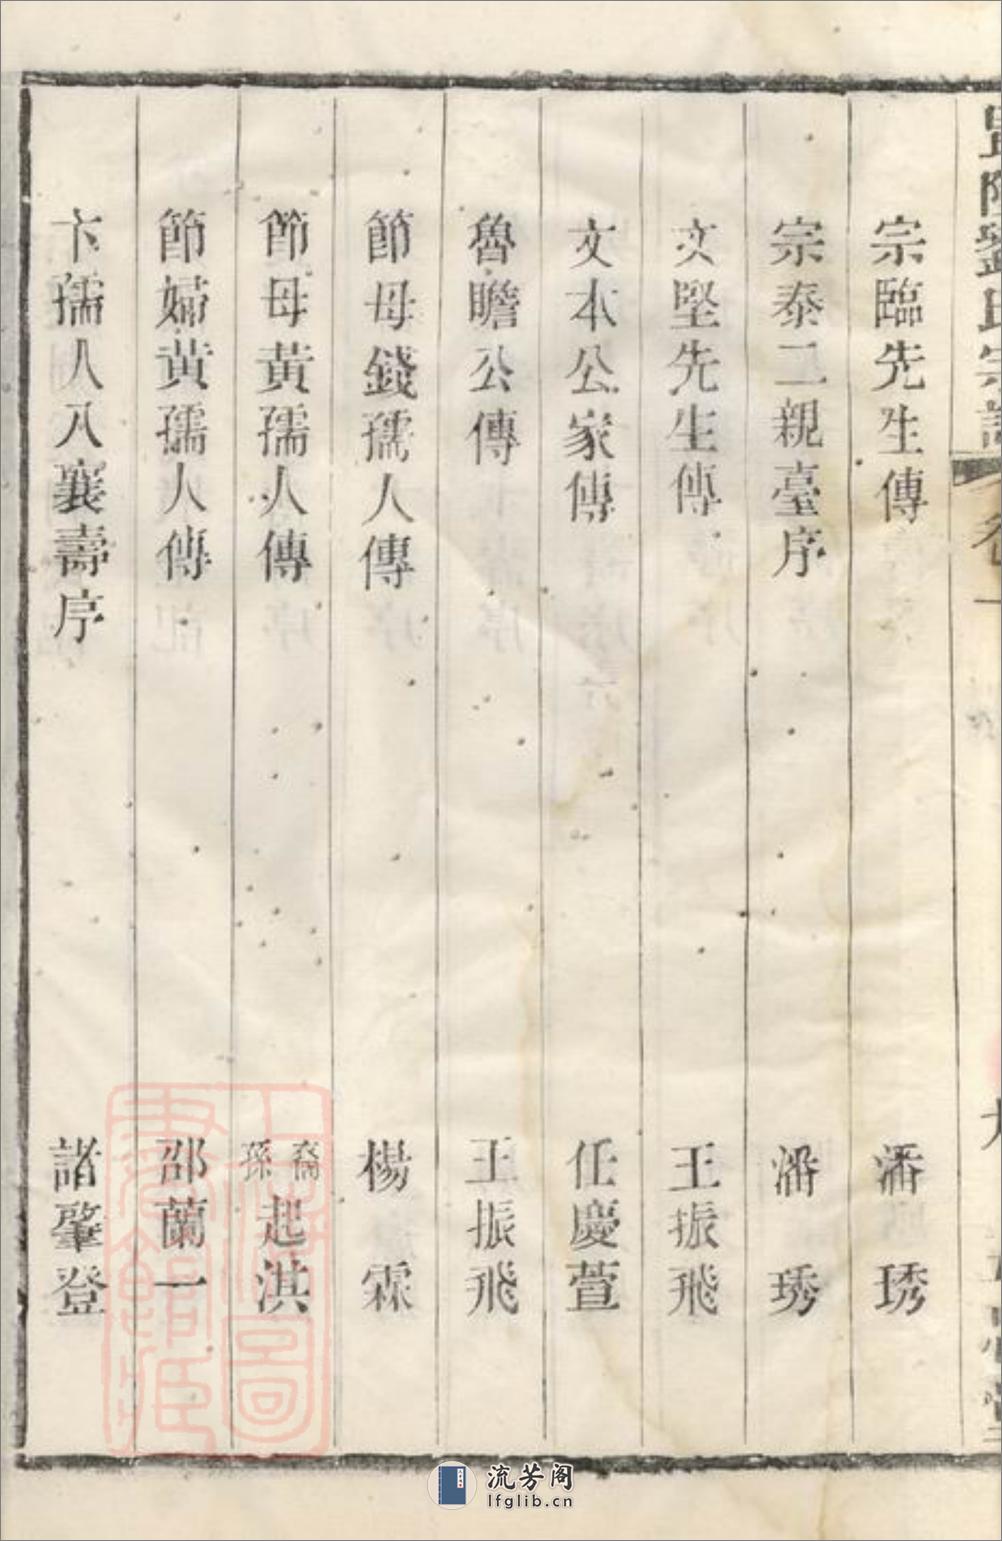 暨陽劉氏宗譜 卷一
宗臨先生傳 潘琇
宗泰二親臺序 潘琇
文堅先生傳 王振飛
文本公家傳 任慶萱
魯瞻公傳 王振飛
節母錢孺人傳 楊霖
節母黃孺人傳 裔孫起淇
節婦黃孺人傳 邵蘭一
卞孺人八襄壽序 諸肇登
上海圖書館藏
流芳阁
lfglib.cn